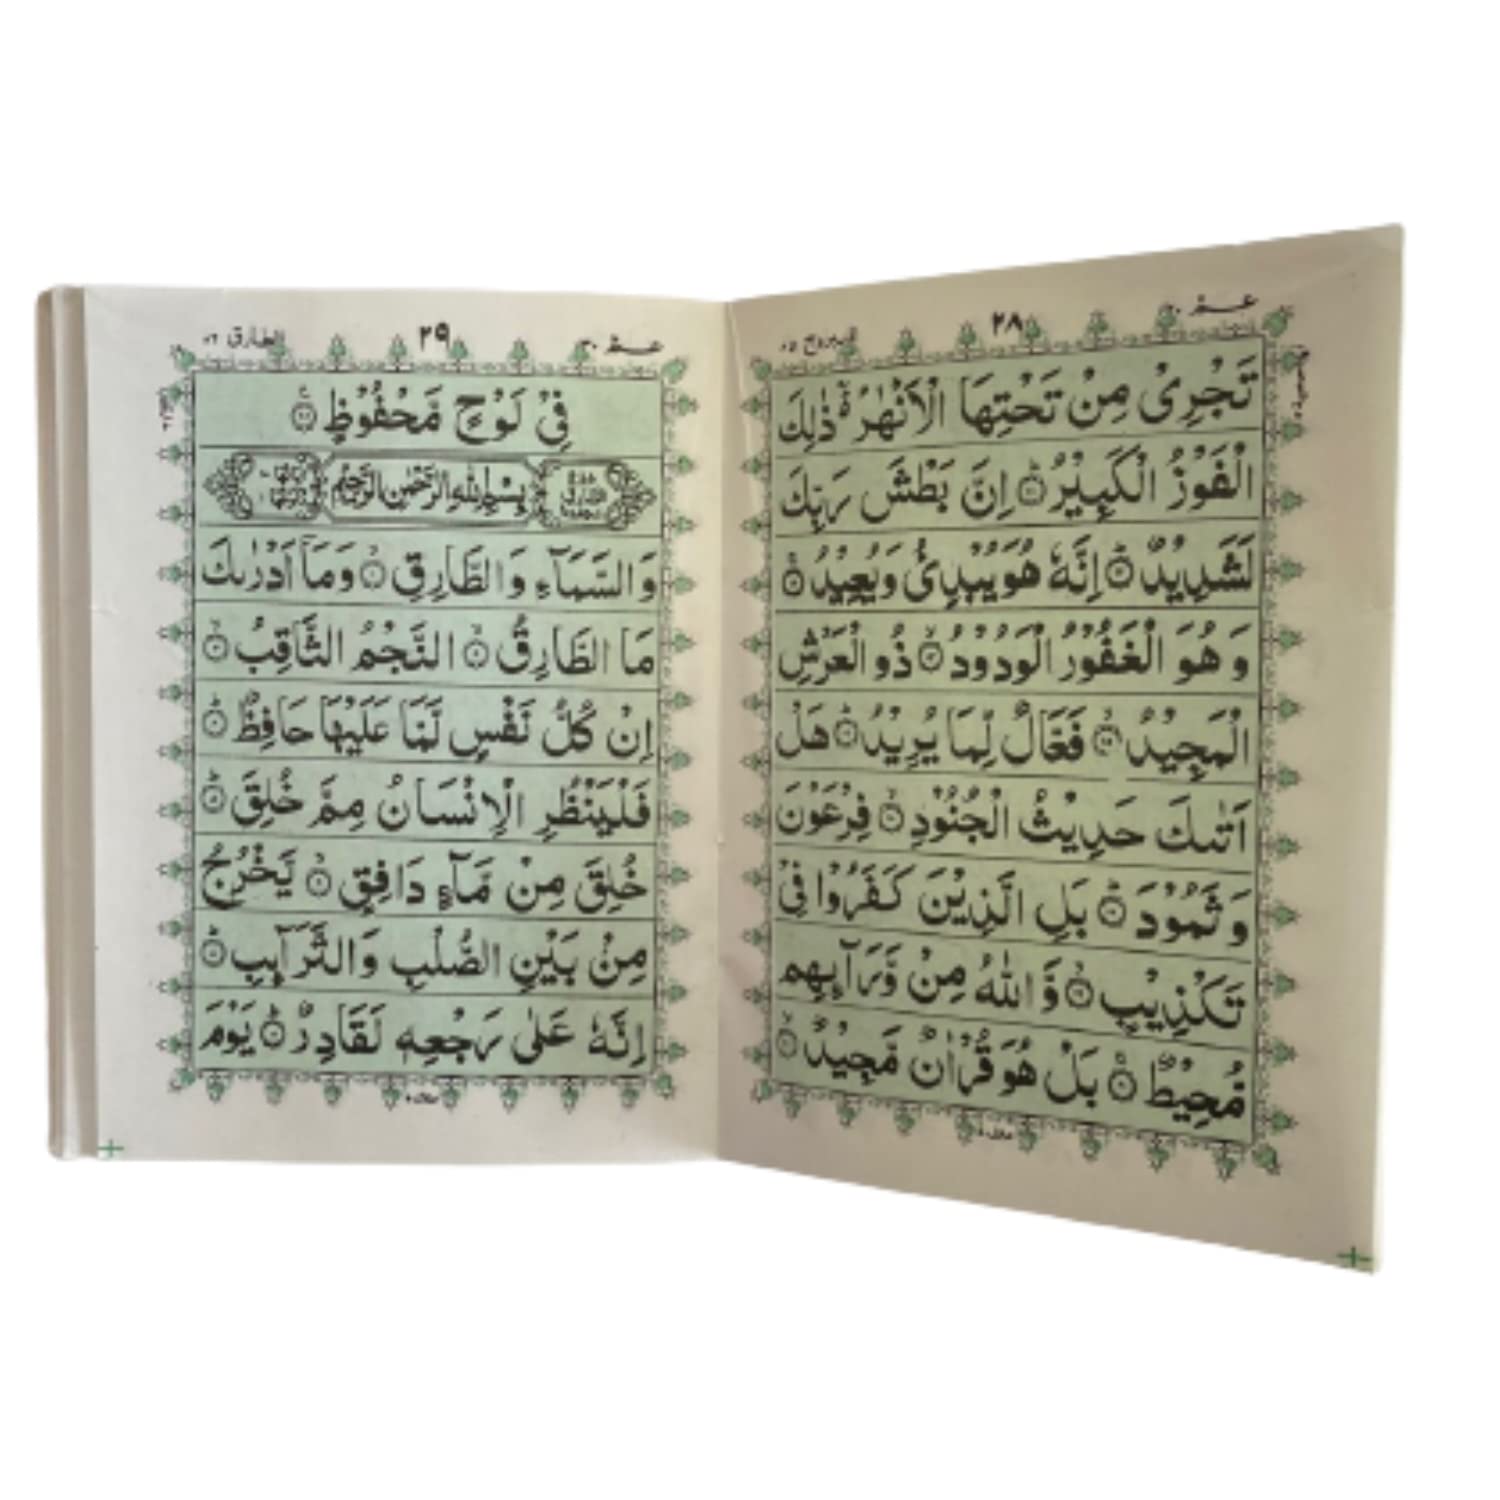 عم ٣٠
٢٨
البروج ٨٥
تَجْرِىْ مِنْ تَحْتِهَا الْاَنْهٰرُ ؕ ذٰلِكَ
الْفَوْزُ الْكَبِيْرُ ؕ ۝ اِنَّ بَطْشَ رَبِّكَ
لَشَدِيْدٌ ؕ ۝ اِنَّهٗ هُوَ يُبْدِئُ وَيُعِيْدُ ۚ ۝
وَهُوَ الْغَفُوْرُ الْوَدُوْدُ ۙ ۝ ذُو الْعَرْشِ
الْمَجِيْدُ ۙ ۝ فَعَّالٌ لِّمَا يُرِيْدُ ؕ ۝ هَلْ
اَتٰىكَ حَدِيْثُ الْجُنُوْدِ ۙ ۝ فِرْعَوْنَ
وَثَمُوْدَ ؕ ۝ بَلِ الَّذِيْنَ كَفَرُوْا فِىْ
تَكْذِيْبٍ ۙ ۝ وَّاللّٰهُ مِنْ وَّرَآىِٕهِمْ
مُّحِيْطٌ ۚ ۝ بَلْ هُوَ قُرْاٰنٌ مَّجِيْدٌ ۙ ۝
عم ٣٠
٢٩
الطارق ٨٦
فِىْ لَوْحٍ مَّحْفُوْظٍ ۝
بِسْمِ اللّٰهِ الرَّحْمٰنِ الرَّحِيْمِ
وَالسَّمَآءِ وَالطَّارِقِ ۙ ۝ وَمَاۤ اَدْرٰىكَ
مَا الطَّارِقُ ۙ ۝ النَّجْمُ الثَّاقِبُ ۙ ۝
اِنْ كُلُّ نَفْسٍ لَّمَّا عَلَيْهَا حَافِظٌ ؕ ۝
فَلْيَنْظُرِ الْاِنْسَانُ مِمَّ خُلِقَ ؕ ۝
خُلِقَ مِنْ مَّآءٍ دَافِقٍ ۙ ۝ يَّخْرُجُ
مِنْۢ بَيْنِ الصُّلْبِ وَالتَّرَآىِٕبِ ؕ ۝
اِنَّهٗ عَلٰى رَجْعِهٖ لَقَادِرٌ ؕ ۝ يَوْمَ